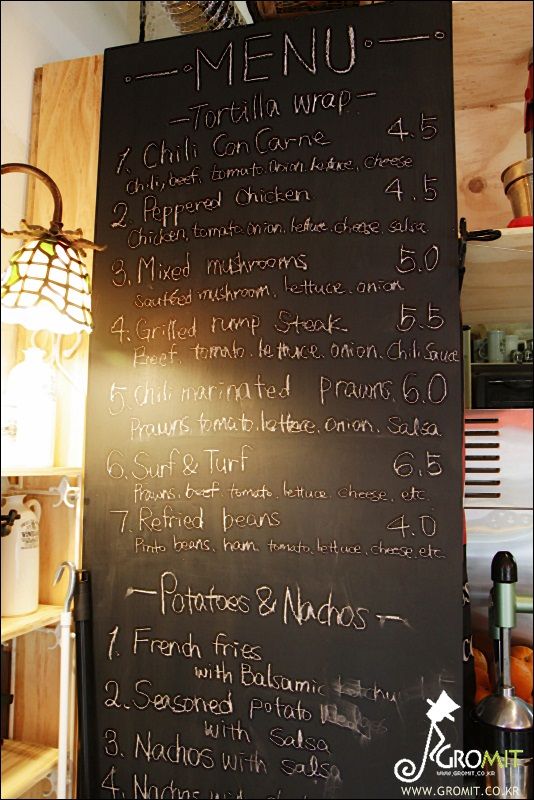 MENU
Tortilla wrap
1. Chili Con Carne 4.5
Chili, beef, tomato. onion. lettuce, cheese
2. Peppered Chicken 4.5
Chicken, tomato. onion. lettuce. cheese. salsa
3. Mixed mushrooms 5.0
Sauteed mushroom. lettuce. onion
4. Grilled rump Steak 5.5
Beef. tomato. lettuce. onion. Chili Sauce
5. Chili marinated prawns 6.0
Prawns. tomato. lettuce. onion. Salsa
6. Surf & Turf 6.5
Prawns. beef. tomato. lettuce. cheese. etc.
7. Refried beans 4.0
Pinto beans. ham. tomato. lettuce. cheese. etc
Potatoes & Nachos
1. French fries
with Balsamic
2. Seasoned potato
with salsa
3. Nachos with salsa
4. Nachos with
GROMIT
WWW.GROMIT.CO.KR
WWW.GROMIT.CO.KR